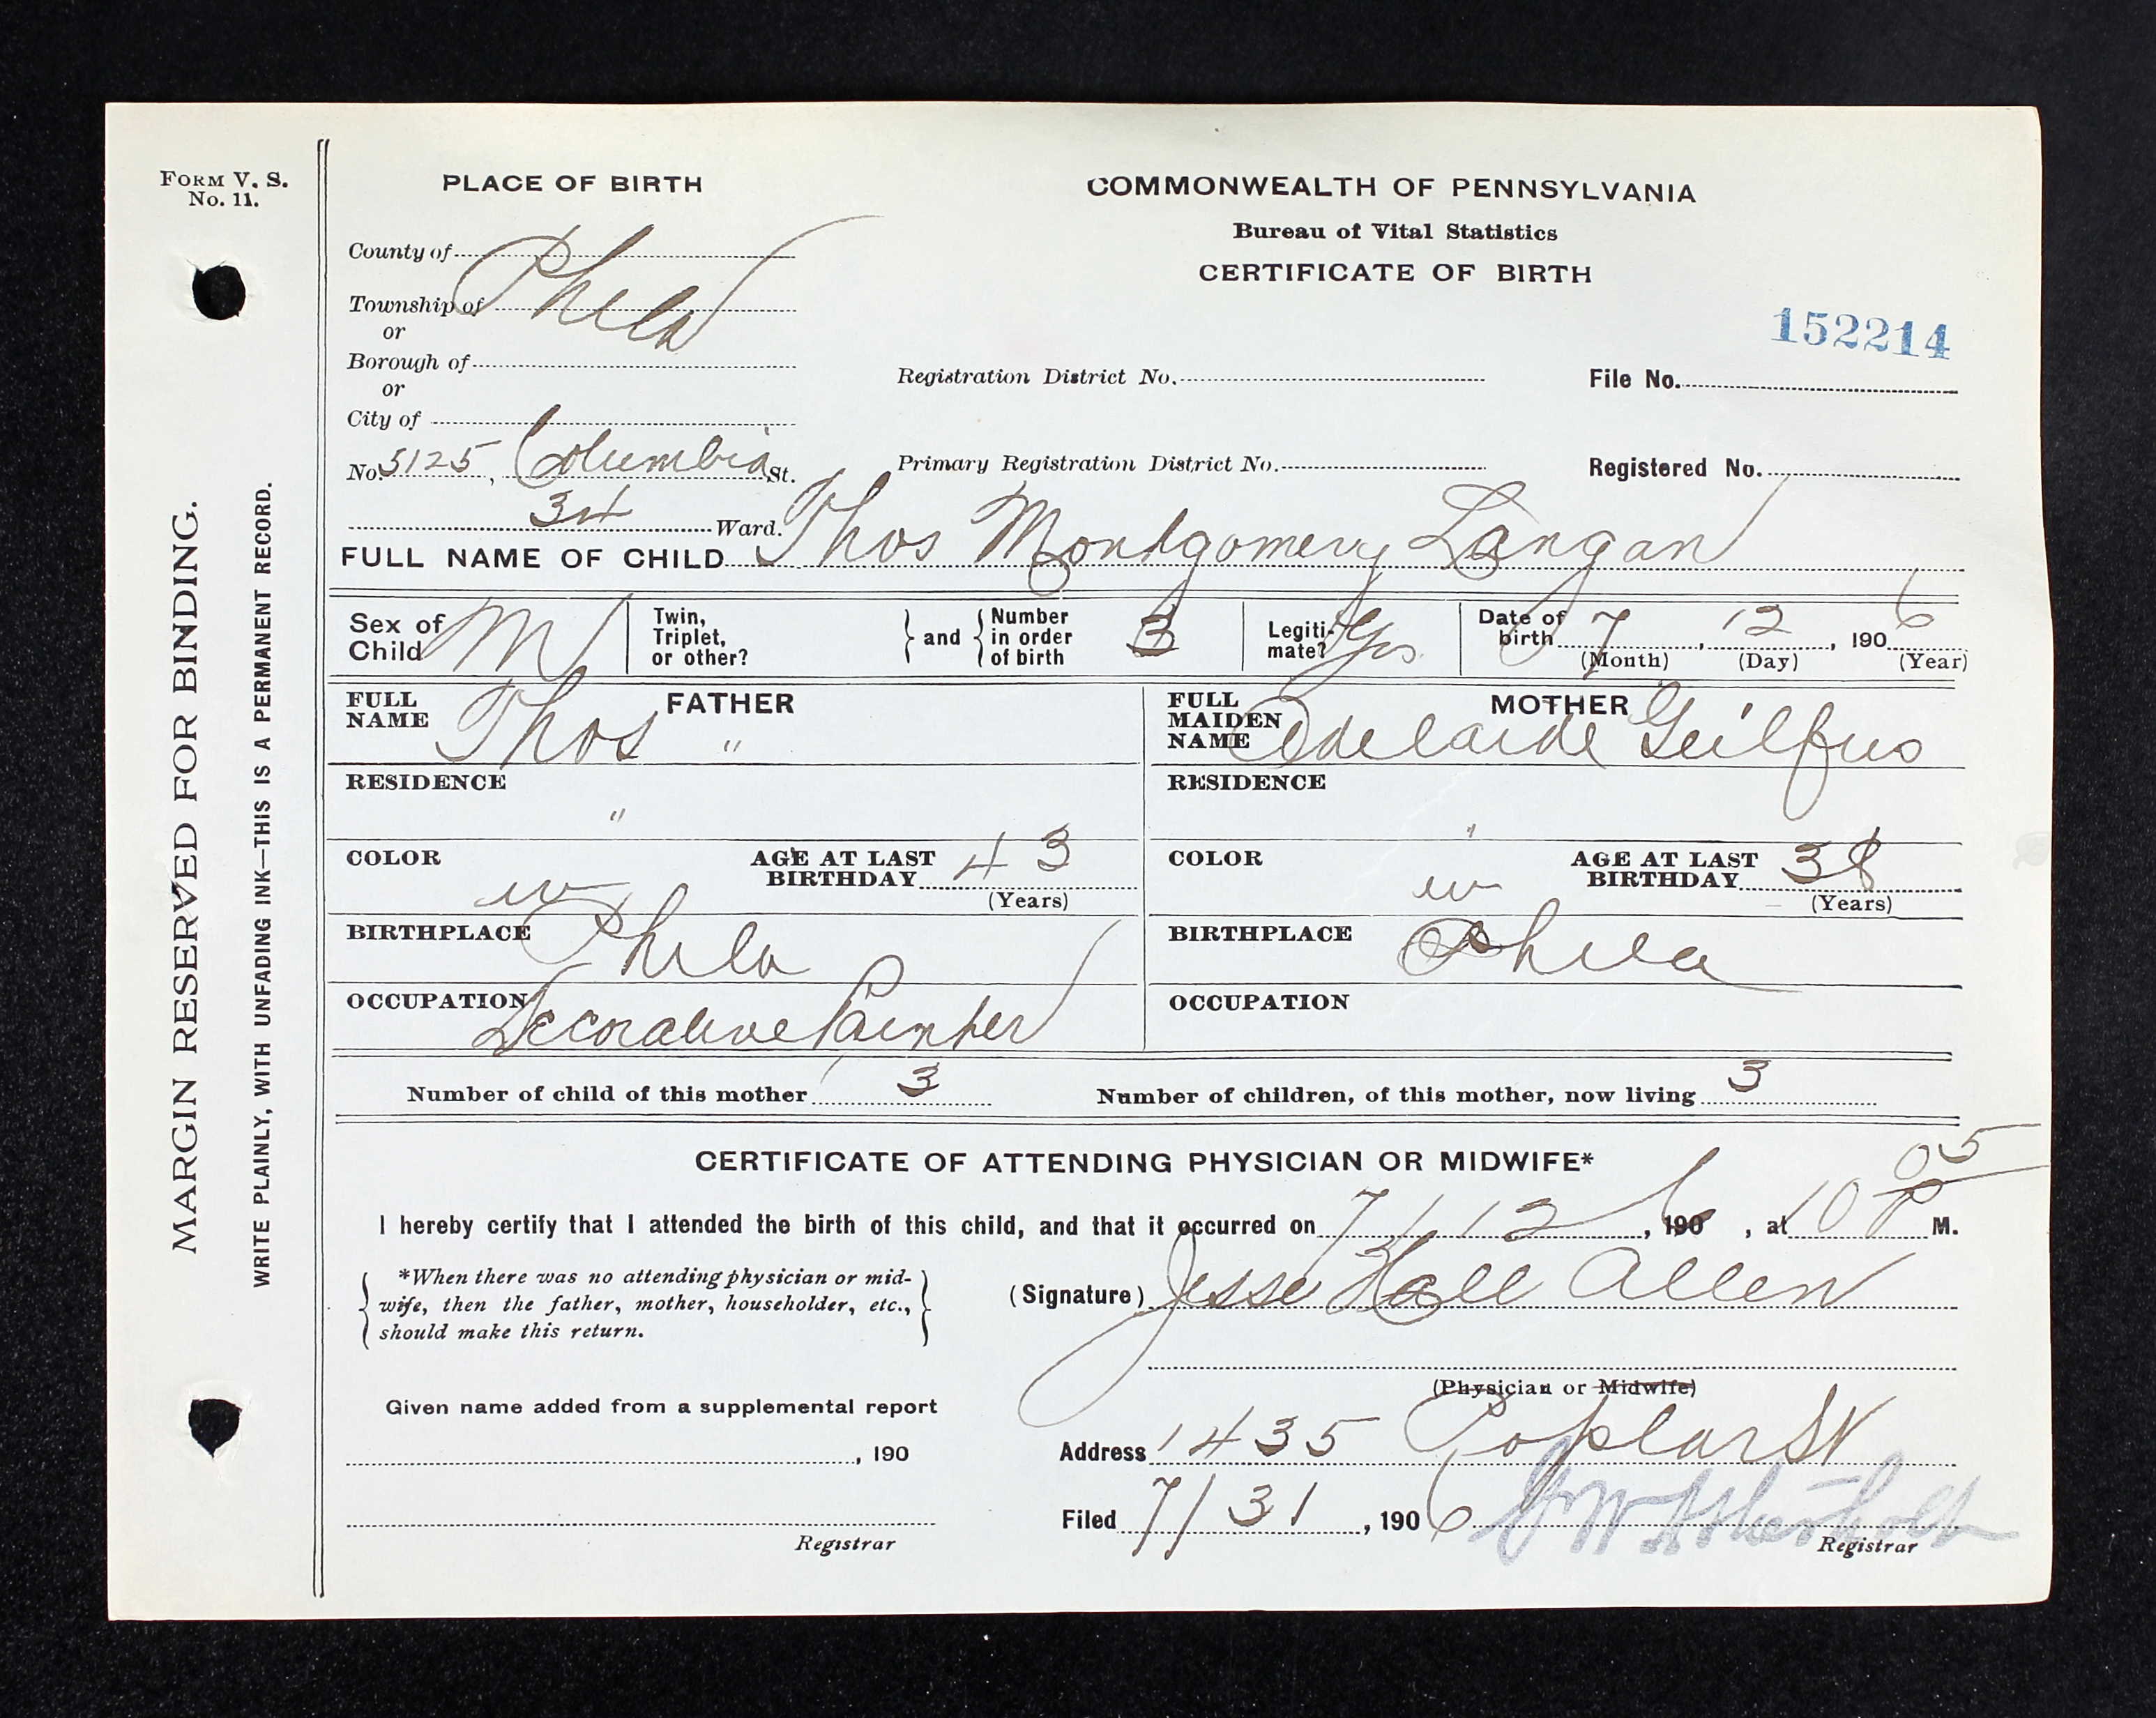 FORM V. S.
No. 11.
MARGIN RESERVED FOR BINDING.
WRITE PLAINLY, WITH UNFADING INK—THIS IS A PERMANENT RECORD.
PLACE OF BIRTH
COMMONWEALTH OF PENNSYLVANIA
Bureau of Vital Statistics
CERTIFICATE OF BIRTH
County of Phila
Township of
or
Borough of
or
City of
152214
Registration District No. File No.
No. 5125, Columbia St.
Primary Registration District No. Registered No.
34 Ward.
FULL NAME OF CHILD Thos Montgomery Langan
Sex of Child M
Twin, Triplet, or other? } and { Number in order of birth 3
Legitimate? Yes
Date of birth 7, 12, 1906
(Month) (Day) (Year)
FATHER
FULL NAME Thos "
MOTHER
FULL MAIDEN NAME Adelaide Geilfus
RESIDENCE "
RESIDENCE "
COLOR w AGE AT LAST BIRTHDAY 43 (Years)
COLOR w AGE AT LAST BIRTHDAY 38 (Years)
BIRTHPLACE Phila
BIRTHPLACE Phila
OCCUPATION Decorative Painter
OCCUPATION
Number of child of this mother 3 Number of children, of this mother, now living 3
CERTIFICATE OF ATTENDING PHYSICIAN OR MIDWIFE*
I hereby certify that I attended the birth of this child, and that it occurred on 7/12, 1906, at 10 05 P M.
{ *When there was no attending physician or mid-
wife, then the father, mother, householder, etc.,
should make this return. }
(Signature) Jesse Hall Allen
(Physician or Midwife)
Given name added from a supplemental report
, 190
Registrar
Address 1435 Poplar St
Filed 7/31, 1906
Registrar